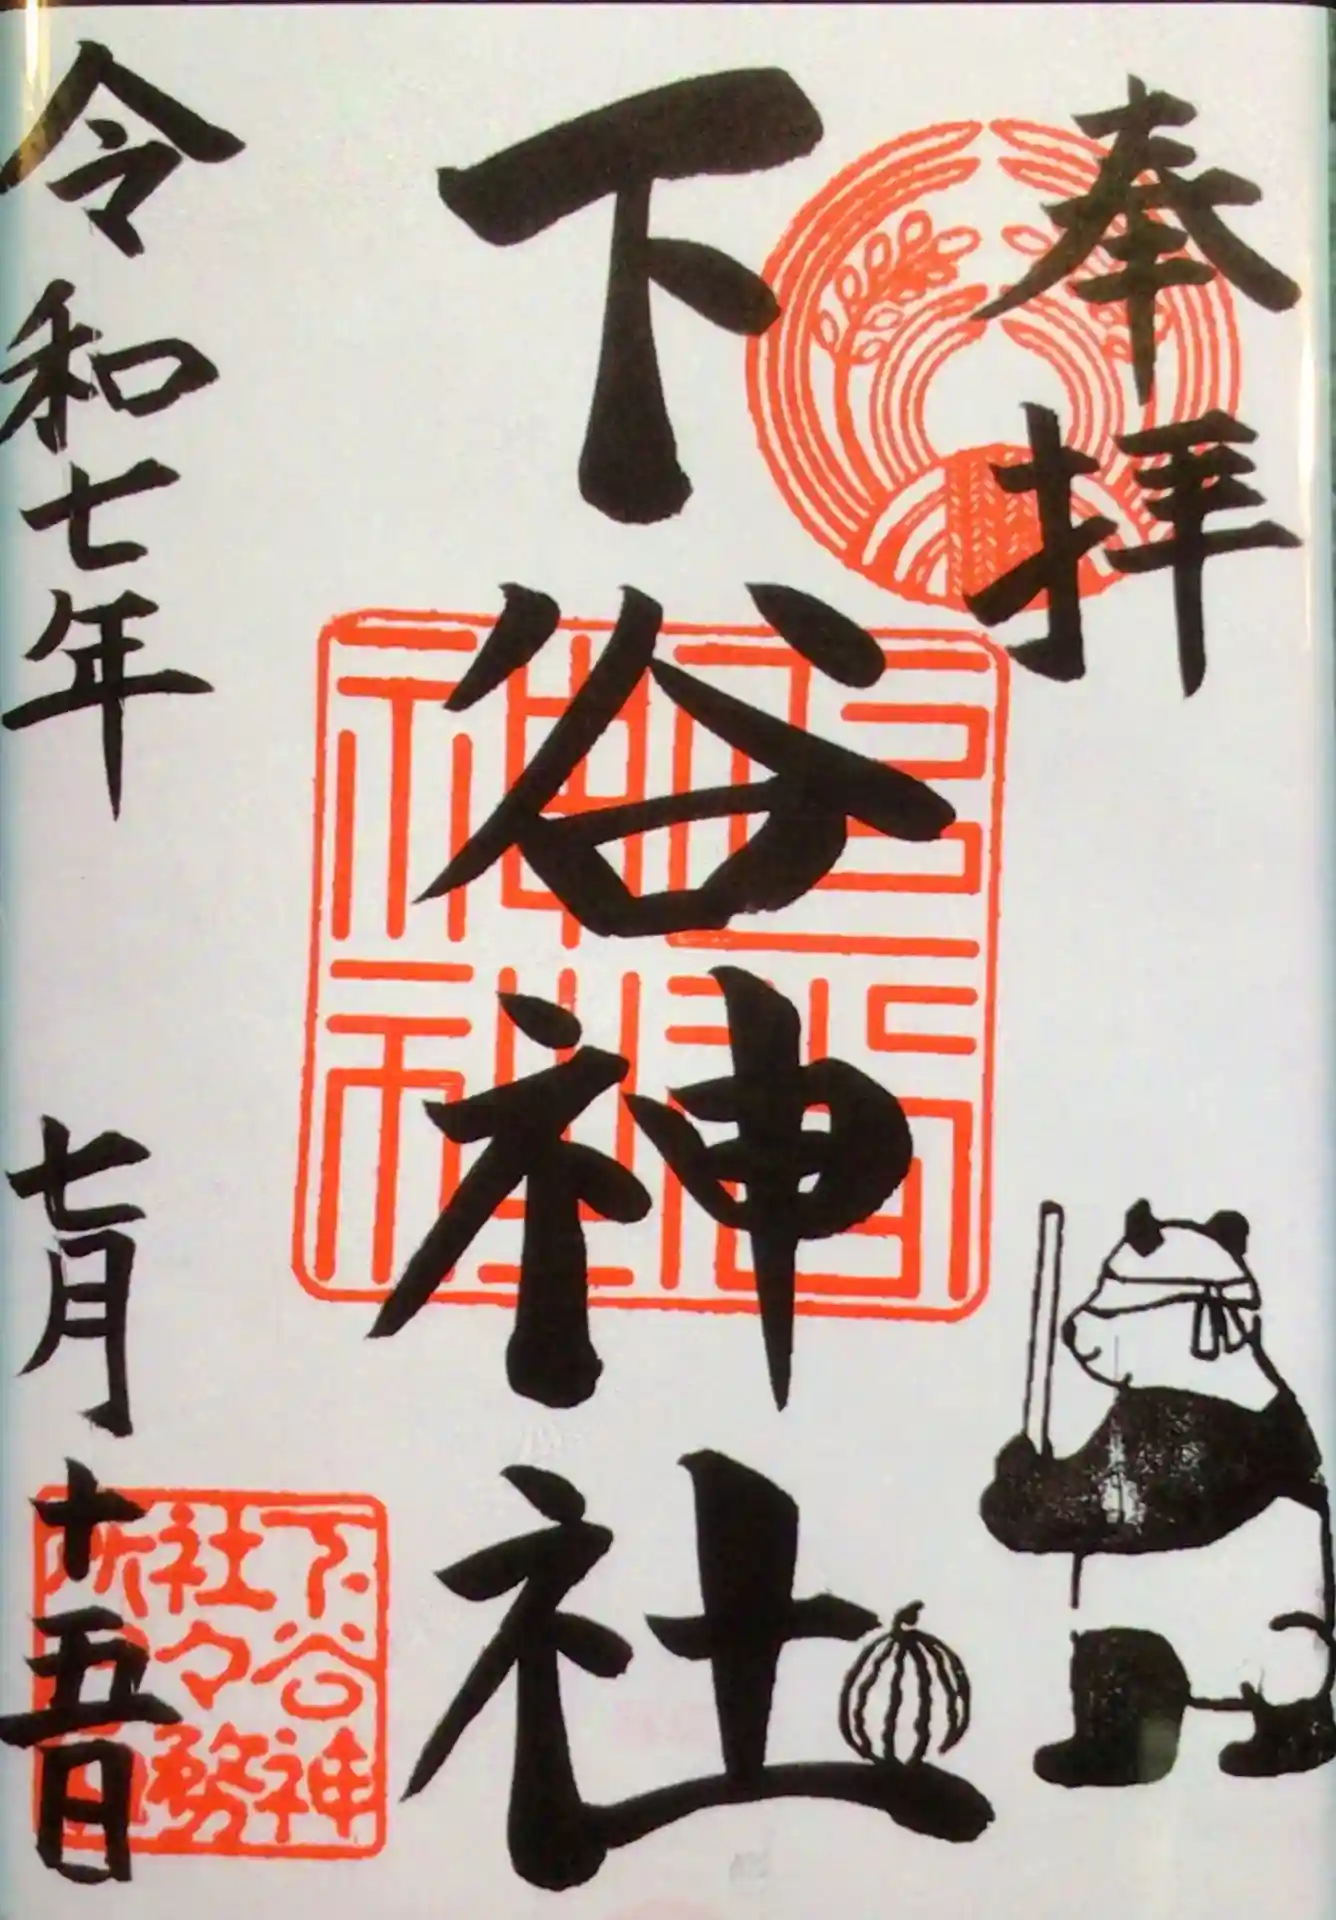 奉拝
下谷神社
令和七年 七月十五日
下谷神
社々務
所